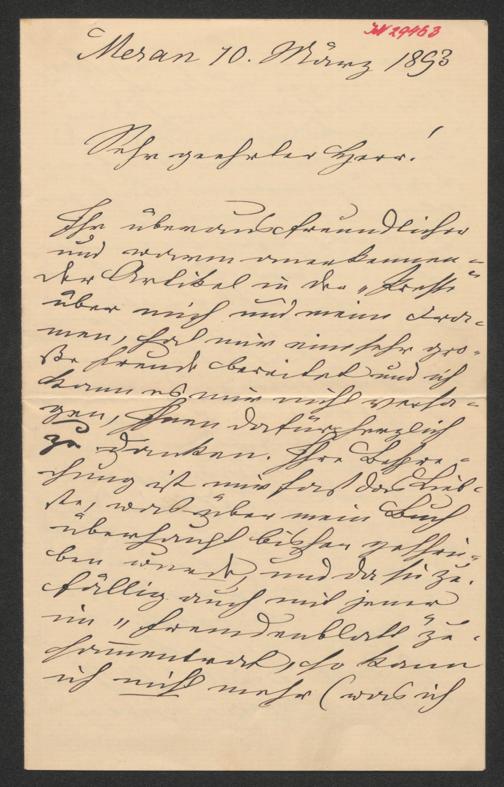 IN 29463
Meran 10. März 1893
Sehr geehrter Herr!
Ihr überaus freundlicher
und warm anerkennen=
der Artikel in der „Presse"
über mich und meine Dra=
men, hat mir eine sehr gro=
ße Freude bereitet und ich
kann es mir nicht versa=
gen, Ihnen dafür herzlich
zu danken. Ihre Bespre=
chung ist mir fast das Lieb=
ste, was über mein Buch
überhaupt bisher geschrie=
ben wurde, und da sie zu=
fällig auch mit jener
im „Fremdenblatt" zu=
sammentraf, so kann
ich nicht mehr (was ich